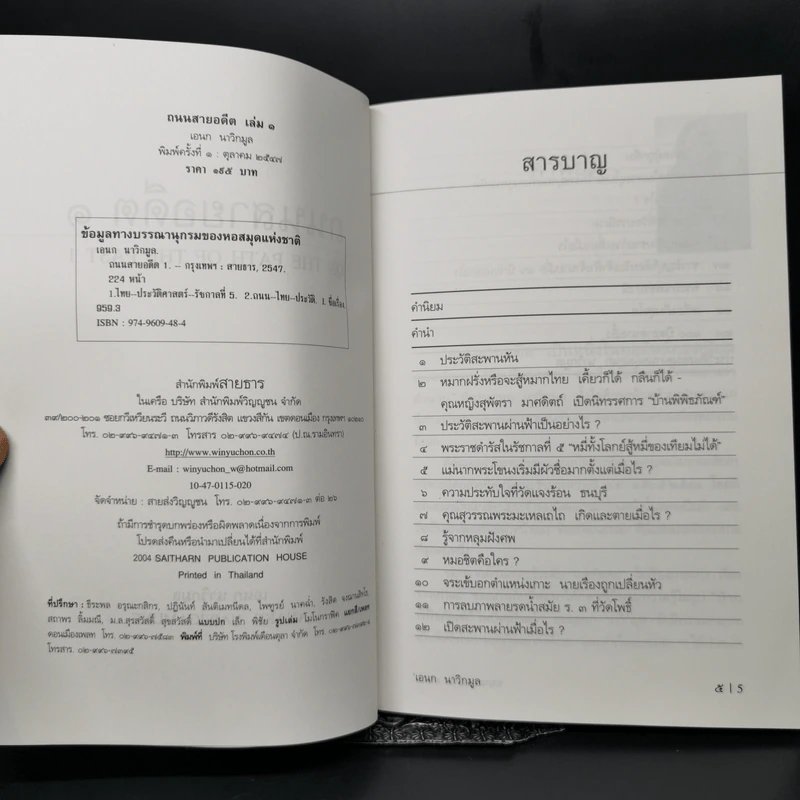 ถนนสายอดีต เล่ม ๑
เอนก นาวิกมูล
พิมพ์ครั้งที่ ๑ : ตุลาคม ๒๕๔๗
ราคา ๑๙๕ บาท
ข้อมูลทางบรรณานุกรมของหอสมุดแห่งชาติ
เอนก นาวิกมูล.
ถนนสายอดีต 1. -- กรุงเทพฯ : สายธาร, 2547.
224 หน้า
1.ไทย--ประวัติศาสตร์--รัชกาลที่ 5. 2.ถนน--ไทย--ประวัติ. I. ชื่อเรื่อง.
959.3
ISBN : 974-9609-48-4
สำนักพิมพ์สายธาร
ในเครือ บริษัท สำนักพิมพ์วิญญูชน จำกัด
๓๙/๒๐๐-๒๐๑ ซอยทวีเหวียนระวี ถนนวิภาวดีรังสิต แขวงสีกัน เขตดอนเมือง กรุงเทพฯ ๑๐๒๑๐
โทร. ๐๒-๙๙๖-๙๔๗๑-๓ โทรสาร ๐๒-๙๙๖-๙๔๗๔ (ป.ณ.รามอินทรา)
http://www.winyuchon.co.th
E-mail : winyuchon_w@hotmail.com
10-47-0115-020
จัดจำหน่าย : สายส่งวิญญูชน โทร. ๐๒-๙๙๖-๙๔๗๑-๓ ต่อ ๒๖
ถ้ามีการชำรุดบกพร่องหรือผิดพลาดเนื่องจากการพิมพ์
โปรดส่งคืนหรือนำมาเปลี่ยนได้ที่สำนักพิมพ์
2004 SAITHARN PUBLICATION HOUSE
Printed in Thailand
ที่ปรึกษา : ธีระพล อรุณะกสิกร, ปฏินันท์ สันติเมทนีดล, ไพฑูรย์ นาคฉ่ำ, รังสิต
สถาพร ลิ้มมณี, ม.ล.สุรสวัสดิ์ สุขสวัสดิ์ แบบปก เล็ก พิชัย รูปเล่ม โมโนกราฟิค
ดอนเมืองเพลท โทร. พิมพ์ที่ บริษัท โรงพิมพ์เดือนตุลา จำกัด โทร.
โทรสาร. ๐๒-๙๙๖-๗๓๙๕
สารบาญ
คำนิยม
คำนำ
๑ ประวัติสะพานหัน
๒ หมากฝรั่งหรือจะสู้หมากไทย เคี้ยวก็ได้ กลืนก็ได้ -
คุณหญิงสุพัตรา มาศดิตถ์ เปิดนิทรรศการ "บ้านพิพิธภัณฑ์"
๓ ประวัติสะพานผ่านฟ้าเป็นอย่างไร ?
๔ พระราชดำรัสในรัชกาลที่ ๕ "หมี่ทั้งโลกย์สู้หมี่ของเทียมไม่ได้"
๕ แม่นากพระโขนงเริ่มมีผัวชื่อมากตั้งแต่เมื่อไร ?
๖ ความประทับใจที่วัดแจงร้อน ธนบุรี
๗ คุณสุวรรณพระมะเหลเถไถ เกิดและตายเมื่อไร ?
๘ รู้จากหลุมฝังศพ
๙ หมอชิตคือใคร ?
๑๐ จระเข้บอกตำแหน่งเกาะ นายเรืองถูกเปลี่ยนหัว
๑๑ การลบภาพลายรดน้ำสมัย ร. ๓ ที่วัดโพธิ์
๑๒ เปิดสะพานผ่านฟ้าเมื่อไร ?
เอนก นาวิกมูล
๕ | 5